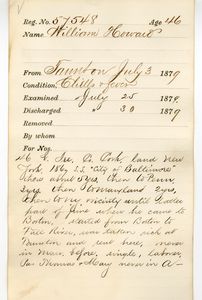 Reg. No. 57548 Age 46
Name William Howard
From Taunton July 3 1879
Condition, Chills & fever
Examined July 25 1879
Discharged " 30 1879
Removed
By whom
For Nos.
46 b. Ire. Co. Cork, land New
York, 1867, S.S. "City of Baltimore"
2 yrs, then to Penn.
3 yrs, then to Maryland 2 yrs,
then to N.Y. vicinity until latter
part of June where he came to
Boston, started from Boston to
Fall River, was taken sick at
Taunton and sent here, never
in Mass. before, single, laborer,
Par. Thomas & Mary never in A-